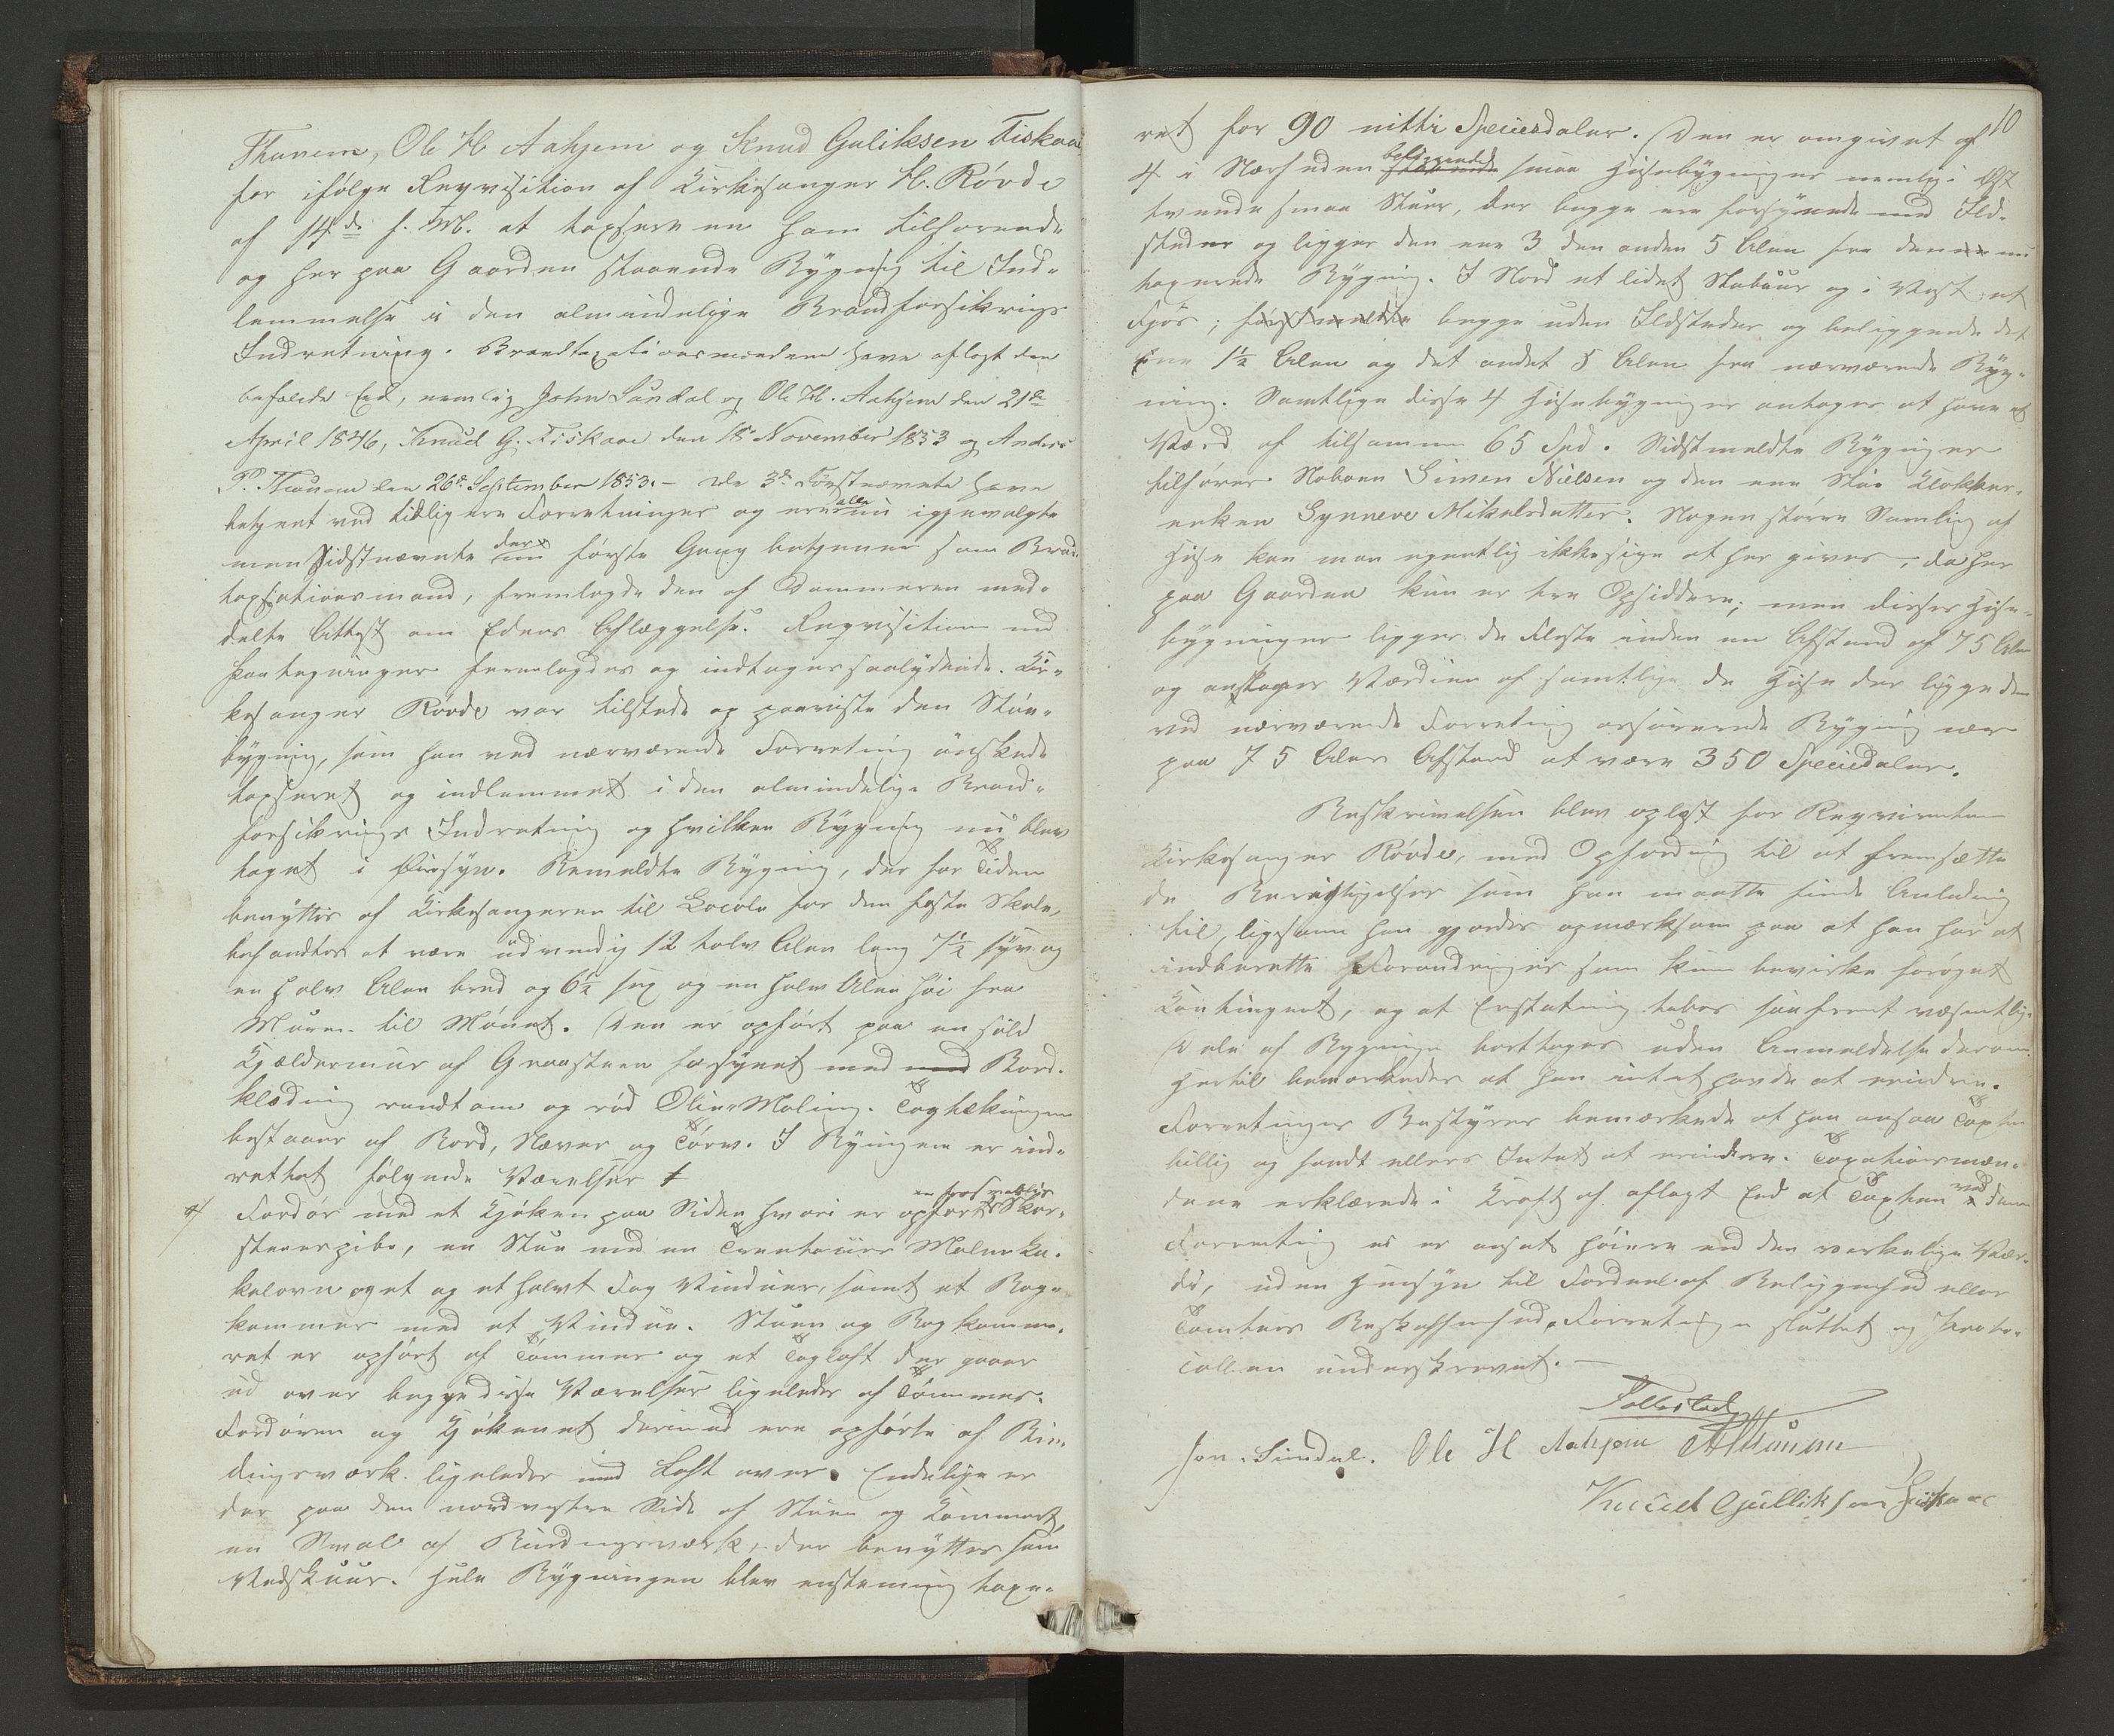 Thunem, Ole H. Aahjem og Knud Guliksen Fiskaae
for ifølge Reqvisition af Kirkesanger H. Røvde
af 14de f. M. at taxsere en ham tilhørende
og her paa Gaarden staaende Bygning til Ind-
lemmelse i den almindelige Brandforsikrings
Indretning. Brandtaxationsmændene have aflagt den
befalede Eed, nemlig John Sundal og Ole H. Aahjem den 21de
April 1846, Knud G. Fiskaae den 18 November 1853 og Anders
P. Thunem den 26de September 1853. - De 3de Førstnævnte have
betjent ved tidligere Forretninger og ere alle nu igjenvalgte
men Sidstnævnte der nu første Gang betjener som Brand-
taxationsmand, fremlagde den af Dommeren med-
delte Attest om Edens Aflæggelse. Reqvisition med
Paategninger fremlagdes og indtages saalydende. Kir-
kesanger Røvde var tilstede og paaviste den Stue-
bygning, som han ved nærværende Forretning ønskede
taxseret og indlemmet i den almindelige Brand-
forsikrings Indretning og hvilken Bygning nu blev
taget i Øiesyn. Bemeldte Bygning, der for Tiden
benyttes af Kirkesangeren til Locale for den faste Skole,
befandtes at være udvendig 12 tolv Alen lang 7½ syv og
en halv Alen bred og 6½ sex og en halv Alen høi fra
Muren til Mønet. Den er opført paa en fuld
Kjældermur af Graasteen forsynet med med Bord-
klædning rundtom og rød Olie-Maling. Tagtækningen
bestaaer af Bord, Næver og Tørv. I Bygningen er ind-
rettet følgende Værelser +
+/ Fordør med et Kjøken paa Siden hvori er opført en forsvarlig Skor-
steenspibe, en Stue med en Treetages Malm Ka-
kelovn og et og et halvt Fag Vinduer, samt et Bag-
kammer med et Vindue. Stuen og Bagkamme-
ret er opført af Tømmer og et Tagloft der gaaer
ud over begge disse Værelser ligeledes af Tømmer.
Fordøren og Kjøkenet derimod ere opførte af Bin-
dingsværk ligeledes med Loft over. Endelig er
der paa den nordvestre Side af Stuen og Kammeret
en Sval af Bindingsværk, der benyttes som
Vedskuur. Hele Bygningen blev enstemmig taxe-
10
ret for 90 nitti Speciesdaler. Den er omgivet af
4 i Nærheden beliggende staaende smaa Huusebygninger nemlig i Øst
tvende smaa Stuer, der begge ere forsynede med Ild-
steder og ligger den ene 3 den anden 5 Alen fra denne nu
taxerede Bygning. I Nord et lidet Stabuur og i Vest et
Fjøs; førstmeldte begge uden Ildsteder og beliggende det
ene 1½ Alen og det andet 5 Alen fra nærværende Byg-
ning. Samtlige disse 4 Huusebygninger antages at have et
Værd af tilsammen 65 Spd. Sidstmeldte Bygninger
tilhører Naboen Simen Nielsen og den ene Stue Klokker-
enken Synneve Mikelsdatter. Nogen større Samling af
Huse kan man egentlig ikke sige at her gives, da her
paa Gaarden kun er tre Opsiddere; men disses Huse-
bygninger ligger de Fleste inden en Afstand af 75 Alen
og antages Værdien af samtlige de Huse der ligge den
ved nærværende Forretning assurerede Bygning nær
paa 75 Alens Afstand at være 350 Speciedaler.
Beskrivelsen blev oplæst for Reqvirenten
Kirkesanger Røvde, med Opfordring til at fremsætte
de Berigtigelser som han maatte finde Anledning
til, ligesom han gjordes opmærksom paa at han har at
indberette Forandringer som kunne bevirke forøget
Kontingent, og at Erstatning tabes saafremt væsentlige
Dele af Bygningen borttages uden Anmeldelse derom.
Hertil bemærkedes at han intet havde at erindre.
Forretningens Bestyrer bemærkede at han ansaa Taxten
billig og fandt ellers Intet at erindre. Taxationsmæn-
dene erklærede i Kraft af aflagt Eed at Taxten ved denne
Forretning ei er ansat høiere end den verkelige Vær-
di, uden Hensyn til Fordeel af Beliggenhed eller
Tomtens Beskaffenhed. Forretningen sluttet og Proto-
collen underskrevet. -
Tollestad
Jon. Sundal. Ole H Aahjem APThunem
Knud Gullikson Fiskaae